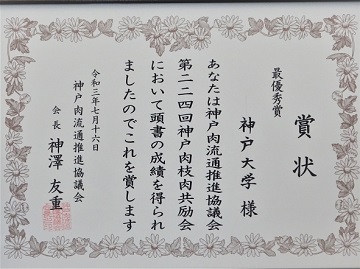 賞状
最優秀賞
神戸大学 様
あなたは神戸肉流通推進協議会
第二二四回神戸肉枝肉共励会
において頭書の成績を得られ
ましたのでこれを賞します
令和三年七月十六日
神戸肉流通推進協議会
会長 神澤友重